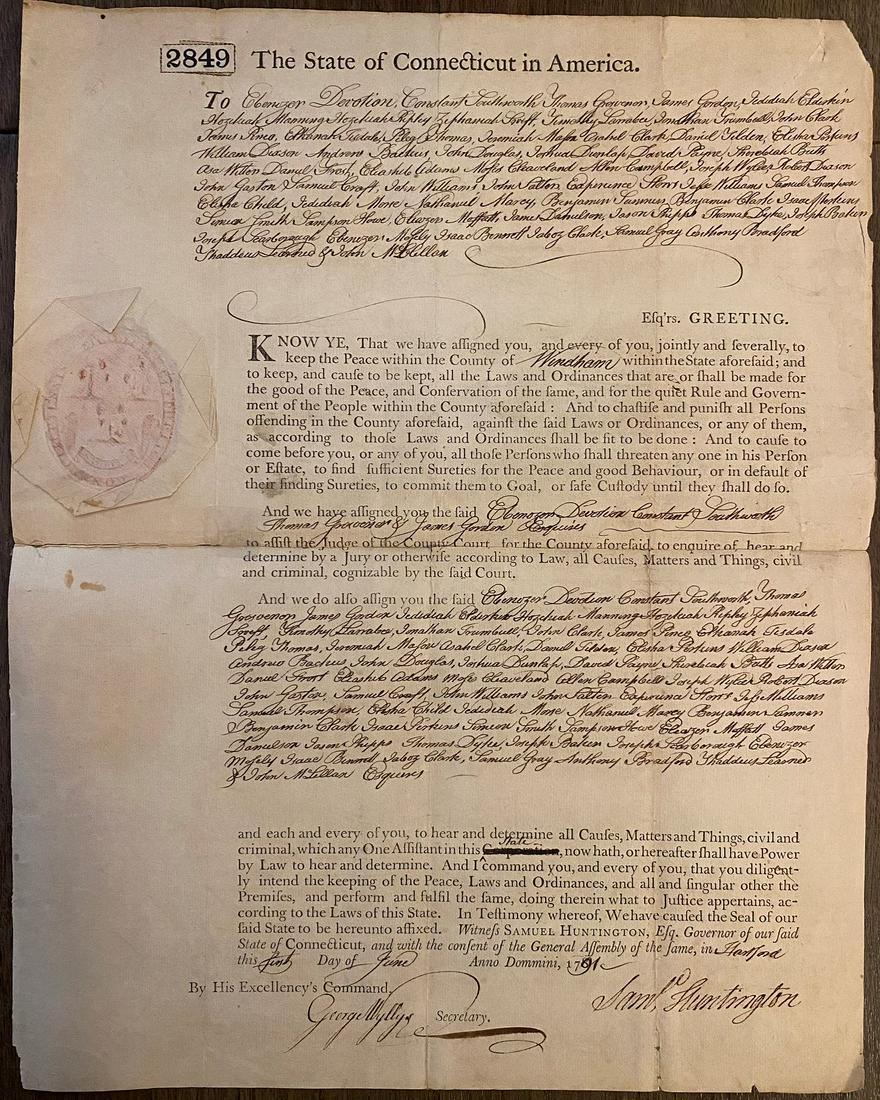 2849 The State of Connecticut in America.
To Ebenezer Devotion, Constant Southworth Thomas Grosvenor, James Gordon, Jedidiah Elderkin
Hezekiah Manning Hezekiah Ripley Zephaniah Swift, Timothy Larrabee, Jonathan Trumbull, John Clark
James Pinco, Elkanah Tisdale, Peleg Thomas, Jeremiah Mason Asahel Clark, Daniel Tilden, Elisha Perkins
William Dixson Andrew Backus, John Douglas, Joshua Dunlap, David Payne, Sherebiah Butts
Asa Witter Daniel Frost, Eliashib Adams Moses Cleaveland Allen Campbell, Joseph Wylie, Robert Dixson
John Gaston Samuel Craft, John Williams John Patten Experience Storrs Jesse Williams Samuel Thompson
Elisha Child, Jedidiah Morse Nathaniel Marcy, Benjamin Sumner Benjamin Clark Isaac Perkins
Simeon Smith Sampson Howe, Eleazer Moffatt, James Danielson, Jason Phipps Thomas Dyke, Joseph Baker
Joseph Scarborough Ebenezer Mosely Isaac Bennett Jabez Clark, Samuel Gray Anthony Bradford
Thaddeus Learned & John McLellan
Esq'rs. GREETING.
KNOW YE, That we have assigned you, and every of you, jointly and severally, to
keep the Peace within the County of Windham within the State aforesaid; and
to keep, and cause to be kept, all the Laws and Ordinances that are or shall be made for
the good of the Peace, and Conservation of the same, and for the quiet Rule and Govern-
ment of the People within the County aforesaid : And to chastise and punish all Persons
offending in the County aforesaid, against the said Laws or Ordinances, or any of them,
as according to those Laws and Ordinances shall be fit to be done : And to cause to
come before you, or any of you, all those Persons who shall threaten any one in his Person
or Estate, to find sufficient Sureties for the Peace and good Behaviour, or in default of
their finding Sureties, to commit them to Goal, or safe Custody until they shall do so.
And we have assigned you the said Ebenezer Devotion Constant Southworth
Thomas Grosvenor & James Gordon Esquires
to assist the Judge of the County Court, for the County aforesaid, to enquire of, hear and
determine by a Jury or otherwise according to Law, all Causes, Matters and Things, civil
and criminal, cognizable by the said Court.
And we do also assign you the said Ebenezer Devotion Constant Southworth, Thomas
Grosvenor James Gordon Jedidiah Elderkin Hezekiah Manning Hezekiah Ripley Zephaniah
Swift Timothy Larrabee, Jonathan Trumbull, John Clark, James Pinco Elkanah Tisdale
Peleg Thomas, Jeremiah Mason Asahel Clark, Daniel Tilden, Elisha Perkins William Dixson
Andrew Backus, John Douglas, Joshua Dunlap, David Payne Sherebiah Butts Asa Witter
Daniel Frost Eliashib Adams Moses Cleaveland Allen Campbell Joseph Wylie Robert Dixson
John Gaston, Samuel Craft, John Williams John Patten Experience Storrs Jesse Williams
Samuel Thompson, Elisha Child Jedidiah Morse Nathaniel Marcy Benjamin Sumner
Benjamin Clark Isaac Perkins Simeon Smith Sampson Howe Eleazer Moffatt James
Danielson Jason Phipps Thomas Dyke, Joseph Baker Joseph Scarborough Ebenezer
Mosely Isaac Bennett Jabez Clark, Samuel Gray Anthony Bradford Thaddeus Learned
& John McLellan Esquires
and each and every of you, to hear and determine all Causes, Matters and Things, civil and
criminal, which any One Assistant in this State Corporation, now hath, or hereafter shall have Power
by Law to hear and determine. And I command you, and every of you, that you diligent-
ly intend the keeping of the Peace, Laws and Ordinances, and all and singular other the
Premises, and perform and fulfil the same, doing therein what to Justice appertains, ac-
cording to the Laws of this State. In Testimony whereof, We have caused the Seal of our
said State to be hereunto affixed. Witness SAMUEL HUNTINGTON, Esq. Governor of our said
State of Connecticut, and with the consent of the General Assembly of the same, in Hartford
this first Day of June Anno Dommini, 1791
By His Excellency's Command,
Saml. Huntington
George Wyllys Secretary.